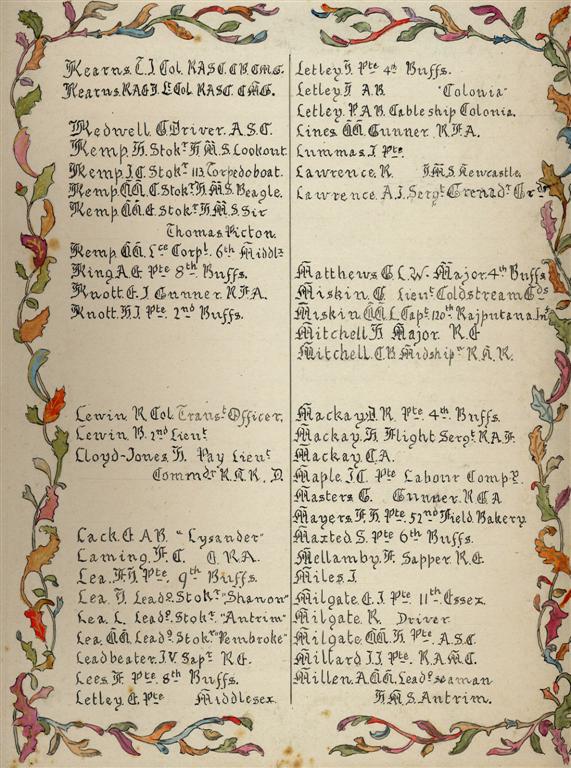 Kearns. T. J. Col. R.A.S.C. C.B. C.M.G.
Kearns. R.A.E.J. Lt Col. R.A.S.C. C.M.G.
Kedwell. G Driver. A.S.C.
Kemp. H. Stokr H.M.S. Lookout.
Kemp. J.C. Stokr 113. Torpedo boat.
Kemp. W. C. Stokr. H.M.S. Beagle.
Kemp W. E. Stokr. H.M.S. Sir
Thomas Picton.
Kemp. W. Lce Corpl. 6th Middlx
King. A.G. Pte 8th Buffs.
Knott. E. J. Gunner. R.F.A.
Knott. H.J. Pte. 2nd Buffs.
Lewin R. Col. Transt Officer.
Lewin B. 2nd Lieut
Lloyd-Jones. H. Pay Lieut
Commdr R.N.R. D.
Lack. G A.B. "Lysander"
Laming. F. C. G. R.A.
Lea. F.H. Pte 9th Buffs.
Lea. H. Leadg. Stokr "Shanon"
Lea. L. Leadg. Stokr. "Antrim"
Lea. W. Leadg. Stokr "Pembroke"
Leadbeater. J.V. Sapr R.E.
Lees. F. Pte. 8th Buffs.
Letley. G. Pte Middlesex.
Letley. H. Pte 4th Buffs.
Letley H A.B. "Colonia"
Letley. P. A.B. Cable ship Colonia.
Lines. W. Gunner. R.F.A.
Lummas. J. Pte
Lawrence. R. H.M.S. Newcastle.
Lawrence. A.J. Sergt. Grenadr Grds
Matthews G L.W. Major. 4th Buffs
Miskin. G. Lieut Coldstream Gds
Miskin W. L. Capt. 120th Rajputana. Inf
Mitchell. H. Major. R.E
Mitchell. C.B. Midshipn R.N.R.
Mackay. R. Pte. 4th Buffs.
Mackay. H. Flight Sergt. R.A.F.
Mackay. C.A.
Maple. J.C. Pte Labour Compy.
Masters G. Gunner. R.G.A.
Mayers F. H. Pte. 52nd Field Bakery.
Maxted S. Pte 6th Buffs.
Mellamby. F. Sapper R.E.
Miles. J.
Milgate. E. J. Pte 11th Essex.
Milgate. R. Driver
Milgate. W. H. Pte. A.S.C.
Millard J. J. Pte. R.A.M.C.
Millen. A.W. Leadg seaman
H.M.S. Antrim.